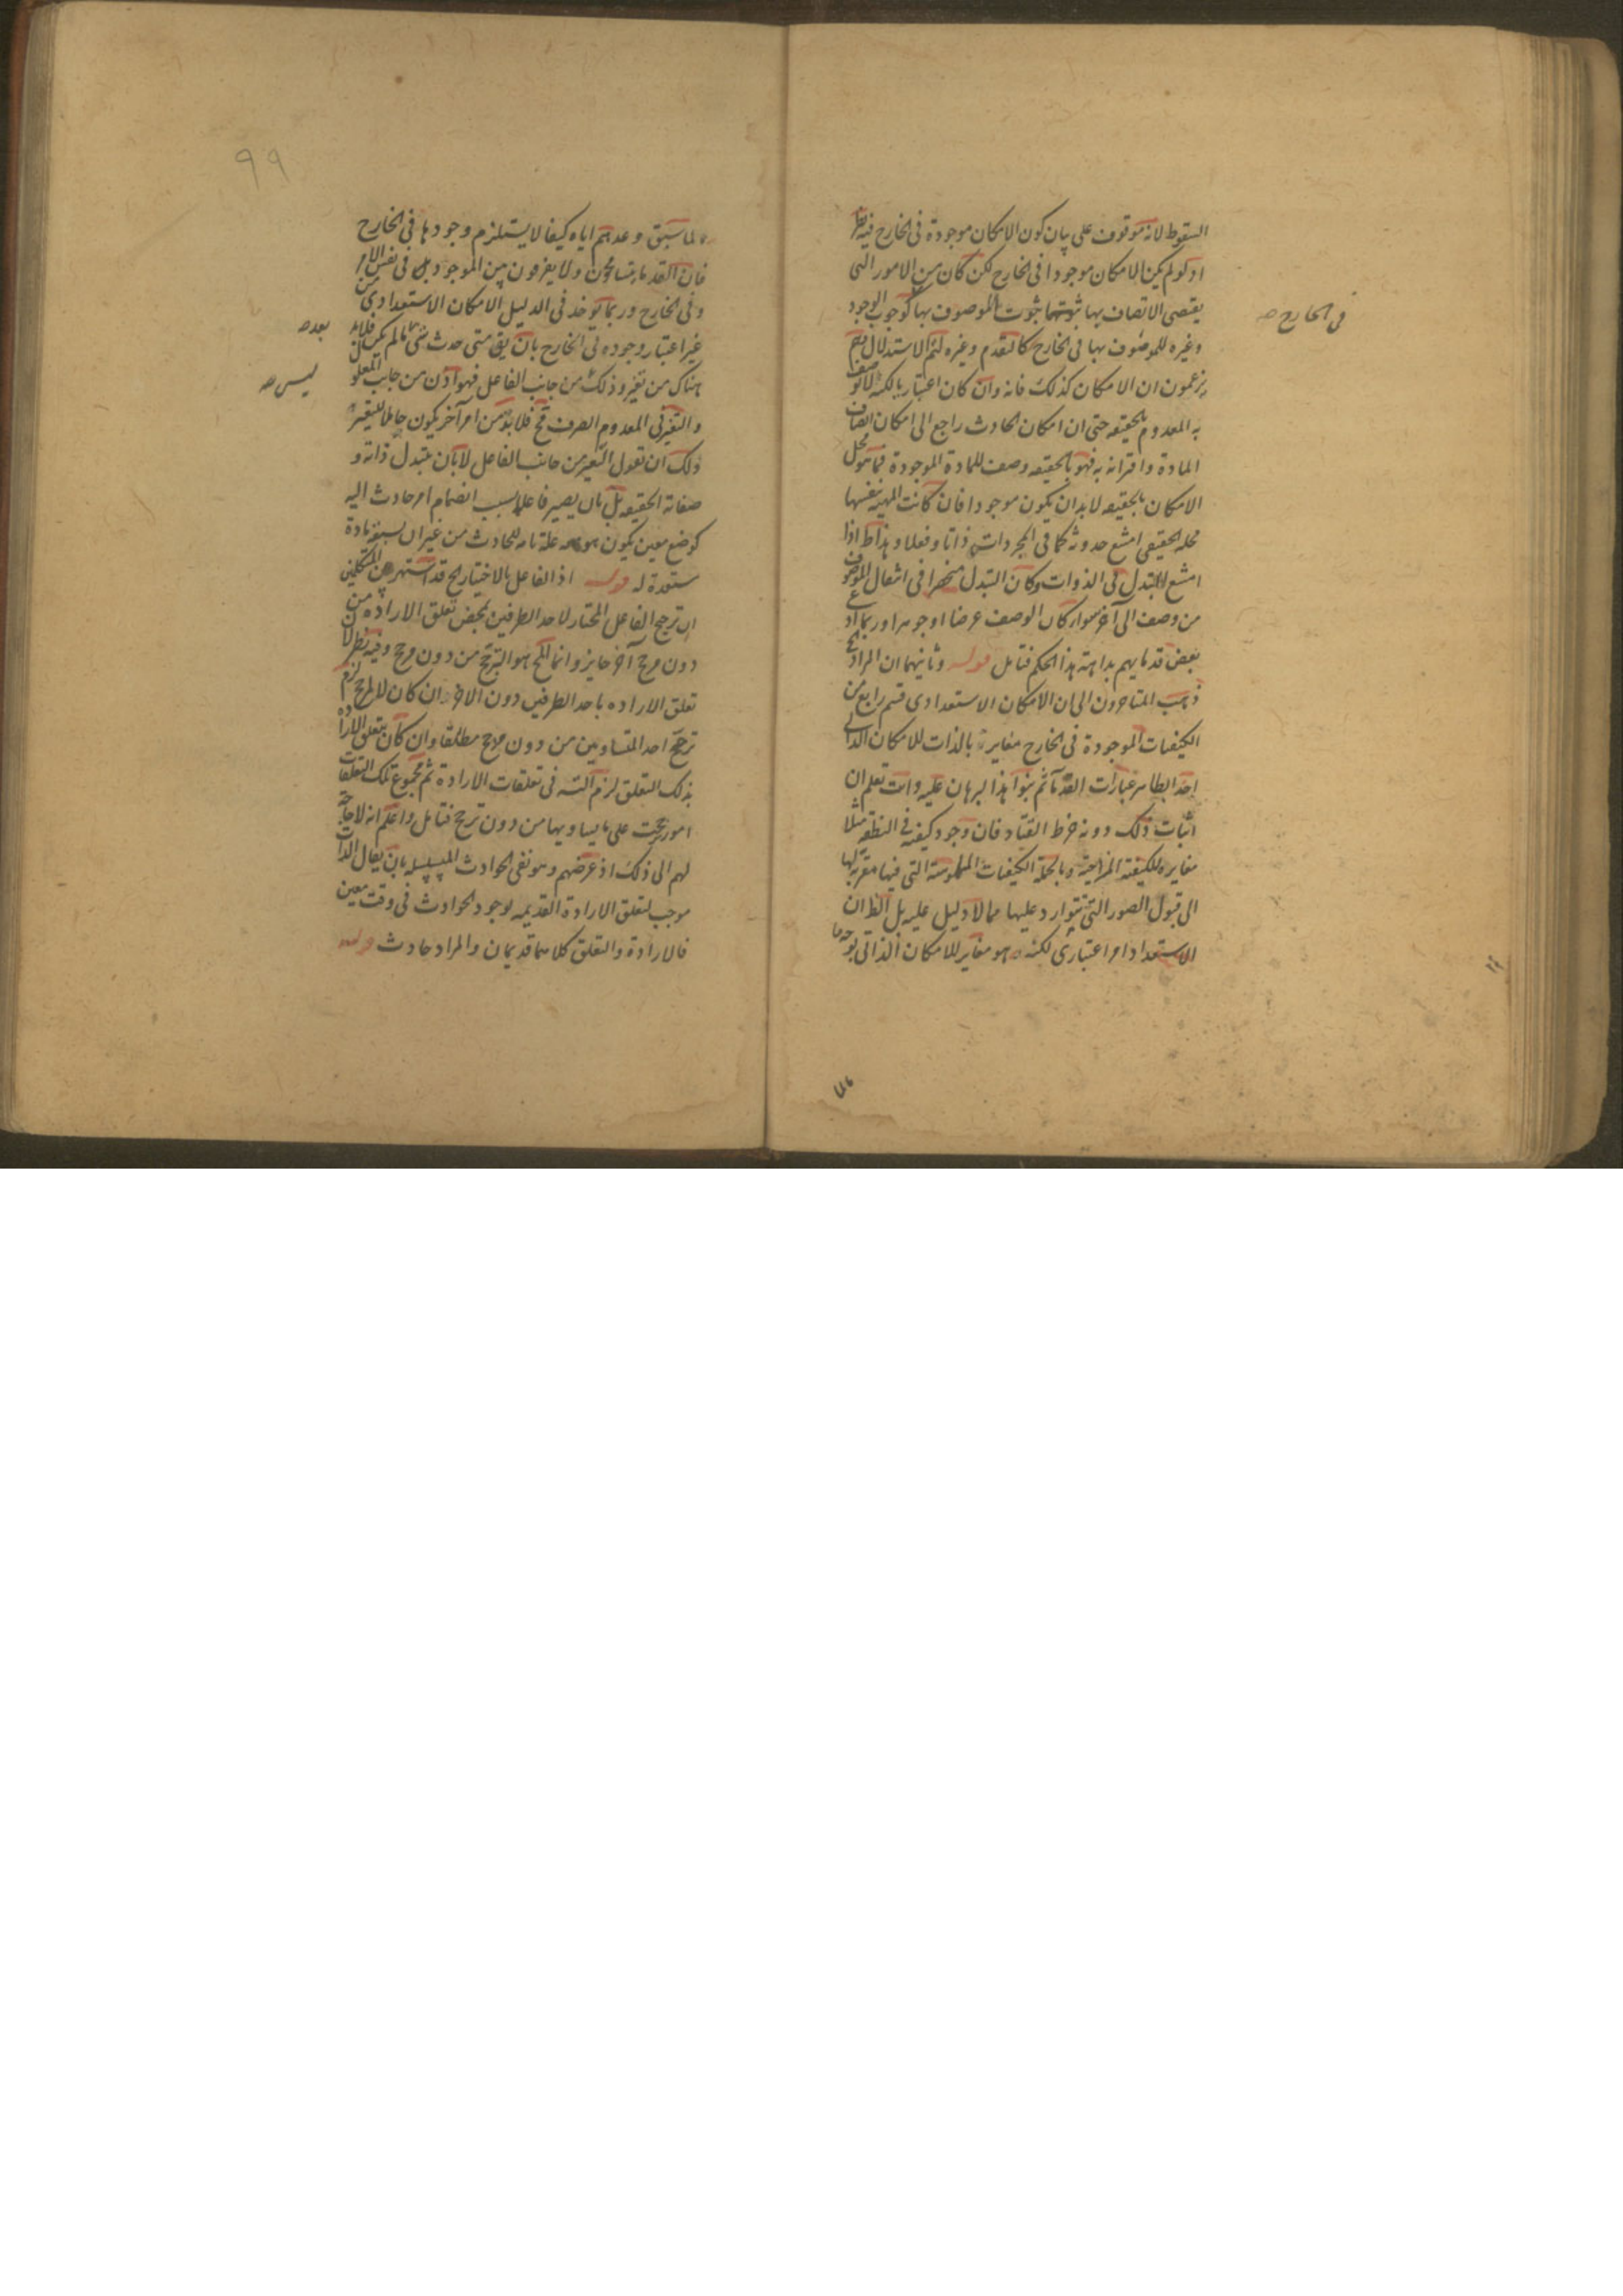 السقوط لانه موقوف على بيان كون الامكان موجودة فى الخارج فيه نظر
اذ لو لم يكن الامكان موجودا فى الخارج لكن كان من الامور التى
يقتضى الاتصاف بها ثبوتها ثبوت الموصوف بها كوجوب الوجود
فى الخارج صح
وغيره للموصوف بها فى الخارج كالتقدم وغيره لتم الاستدلال
يزعمون ان الامكان كذلك فانه وان كان اعتباريا لكنه لا يوصف
به المعدوم بالحقيقه حتى ان امكان الحادث راجع الى امكان اتصاف
المادة واقترانه به فهو بالحقيقه وصف للمادة الموجودة فما هو محل
الامكان بالحقيقه لا بد ان يكون موجودا فان كانت المهية بنفسها
محله الحقيقى امتنع حدوثه كما فى المجردات ذاتا وفعلا وهذا اذا
امتنع التبدل فى الذوات وكان التبدل منحصرا فى انتقال الموصوف
من وصف الى آخر سوا كان الوصف عرضا او جوهرا وربما ادعى
بعض قدمايهم بداهة هذا الحكم فتامل قوله وثانيهما ان المراد
ذهب المتاخرون الى ان الامكان الاستعدادى قسم رابع من
الكيفيات الموجودة فى الخارج مغايرة بالذات للامكان الذاتى
اخذا بظاهر عبارات القدمآ ثم بنوا هذا البرهان عليه وانت تعلم ان
اثبات ذلك دونه خرط القتاد فان وجود كيفية فى النطفة مثلا
مغايرة للكيفية المزاجية وبالجملة الكيفيات الملموسة التى فيها مقربة لها
الى قبول الصور التى تتوارد عليها مما لا دليل عليه بل الظ ان
الاستعداد امر اعتبارى لكنه هو مغاير للامكان الذاتى بوجه ما
٩٩
لما سبق وعدهم اياه كيفا لا يستلزم وجودها فى الخارج
فان القدما يتسامحون ولا يفرقون بين الموجود فى نفس الامر
وفى الخارج وربما يوخذ فى الدليل الامكان الاستعدادى من
غير اعتبار وجوده فى الخارج بان يق متى حدث شى ما لم يكن فلا بد
بعد صح
هناك من تغير وذلك من جانب الفاعل فهو اذن من جانب المعلول
ليس صح
والتغير فى المعدوم الصرف مح فلا بد من امر آخر يكون حاملا للتغير
ولك ان تقول التغير من جانب الفاعل لا بان يتبدل ذاته و
صفاته الحقيقيه بل بان يصير فاعلا بسبب انضمام امر حادث اليه
كوضع معين يكون هو معه علة تامه للحادث من غير ان يسبقه مادة
مستعدة له قوله اذ الفاعل بالاختيار الخ قد اشتهر بين المتكلمين
ان ترجيح الفاعل المختار لاحد الطرفين بمحض تعلق الاراده من
دون مرجح آخر جايز وانما المح هو الترجح من دون مرجح وفيه نظر لان
تعلق الاراده باحد الطرفين دون الاخر ان كان لا لمرجح لزم
ترجح احد المتساويين من دون مرجح مطلقا وان كان بتعلق الارادة
بذلك التعلق لزم التسه فى تعلقات الارادة ثم مجموع تلك التعلقات
امور رجحت على ما يساويها من دون ترجيح فتامل واعلم انه لا حاجة
لهم الى ذلك اذ غرضهم وهو نفى الحوادث المتسلسله بان يقال الذات
موجب لتعلق الارادة القديمه لوجود الحوادث فى وقت معين
فالارادة والتعلق كلاهما قديمان والمراد حادث قوله